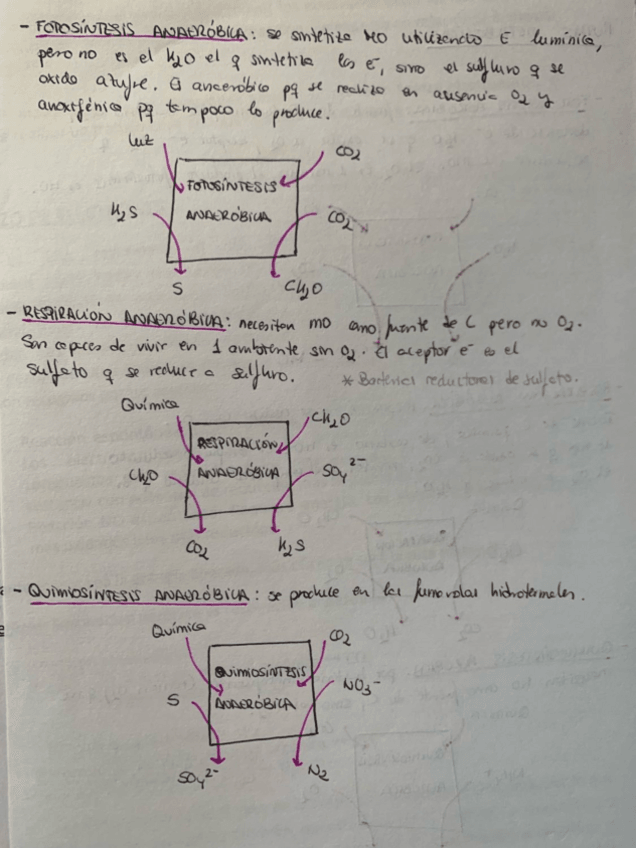 - FOTOSÍNTESIS ANAERÓBICA: se sintetiza MO utilizando E lumínica,
pero no es el H2O el q sintetiza los e-, sino el sulfuro q se
oxida a azufre. Es anaeróbico pq se realiza en ausencia O2 y
anoxigénica pq tampoco lo produce.
Luz
CO2
FOTOSÍNTESIS
ANAERÓBICA
H2S
CO2
S
CH2O
- RESPIRACIÓN ANAERÓBICA: necesitan MO como fuente de C pero no O2.
Son capaces de vivir en 1 ambiente sin O2. El aceptor e- es el
sulfato q se reduce a sulfuro.
* Bacterias reductoras de sulfato.
Química
CH2O
RESPIRACIÓN
ANAERÓBICA
CH2O
SO4 2-
CO2
H2S
- QUIMIOSÍNTESIS ANAERÓBICA: se produce en las fumarolas hidrotermales.
Química
CO2
QUIMIOSÍNTESIS
ANAERÓBICA
S
NO3-
SO4 2-
N2